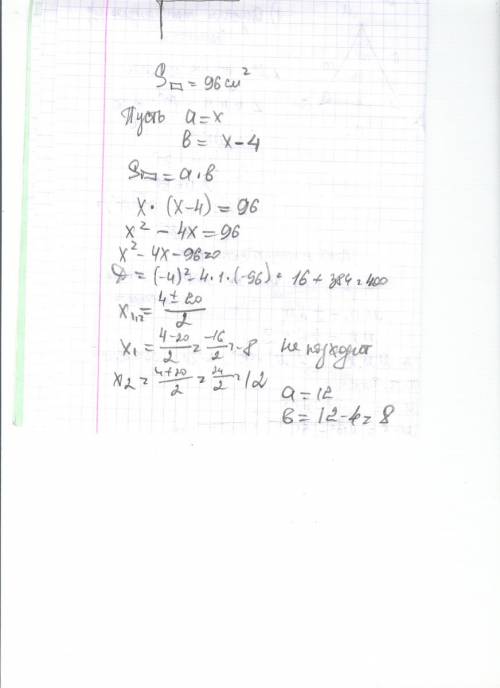 S▭ = 96 см²
Пусть a = x
b = x - 4
S▭ = a · b
x · (x - 4) = 96
x² - 4x = 96
x² - 4x - 96 = 0
D = (-4)² - 4 · 1 · (-96) = 16 + 384 = 400
x₁,₂ = (4 ± 20)/2
x₁ = (4 - 20)/2 = -16/2 = -8 не подходит
x₂ = (4 + 20)/2 = 24/2 = 12
a = 12
b = 12 - 4 = 8